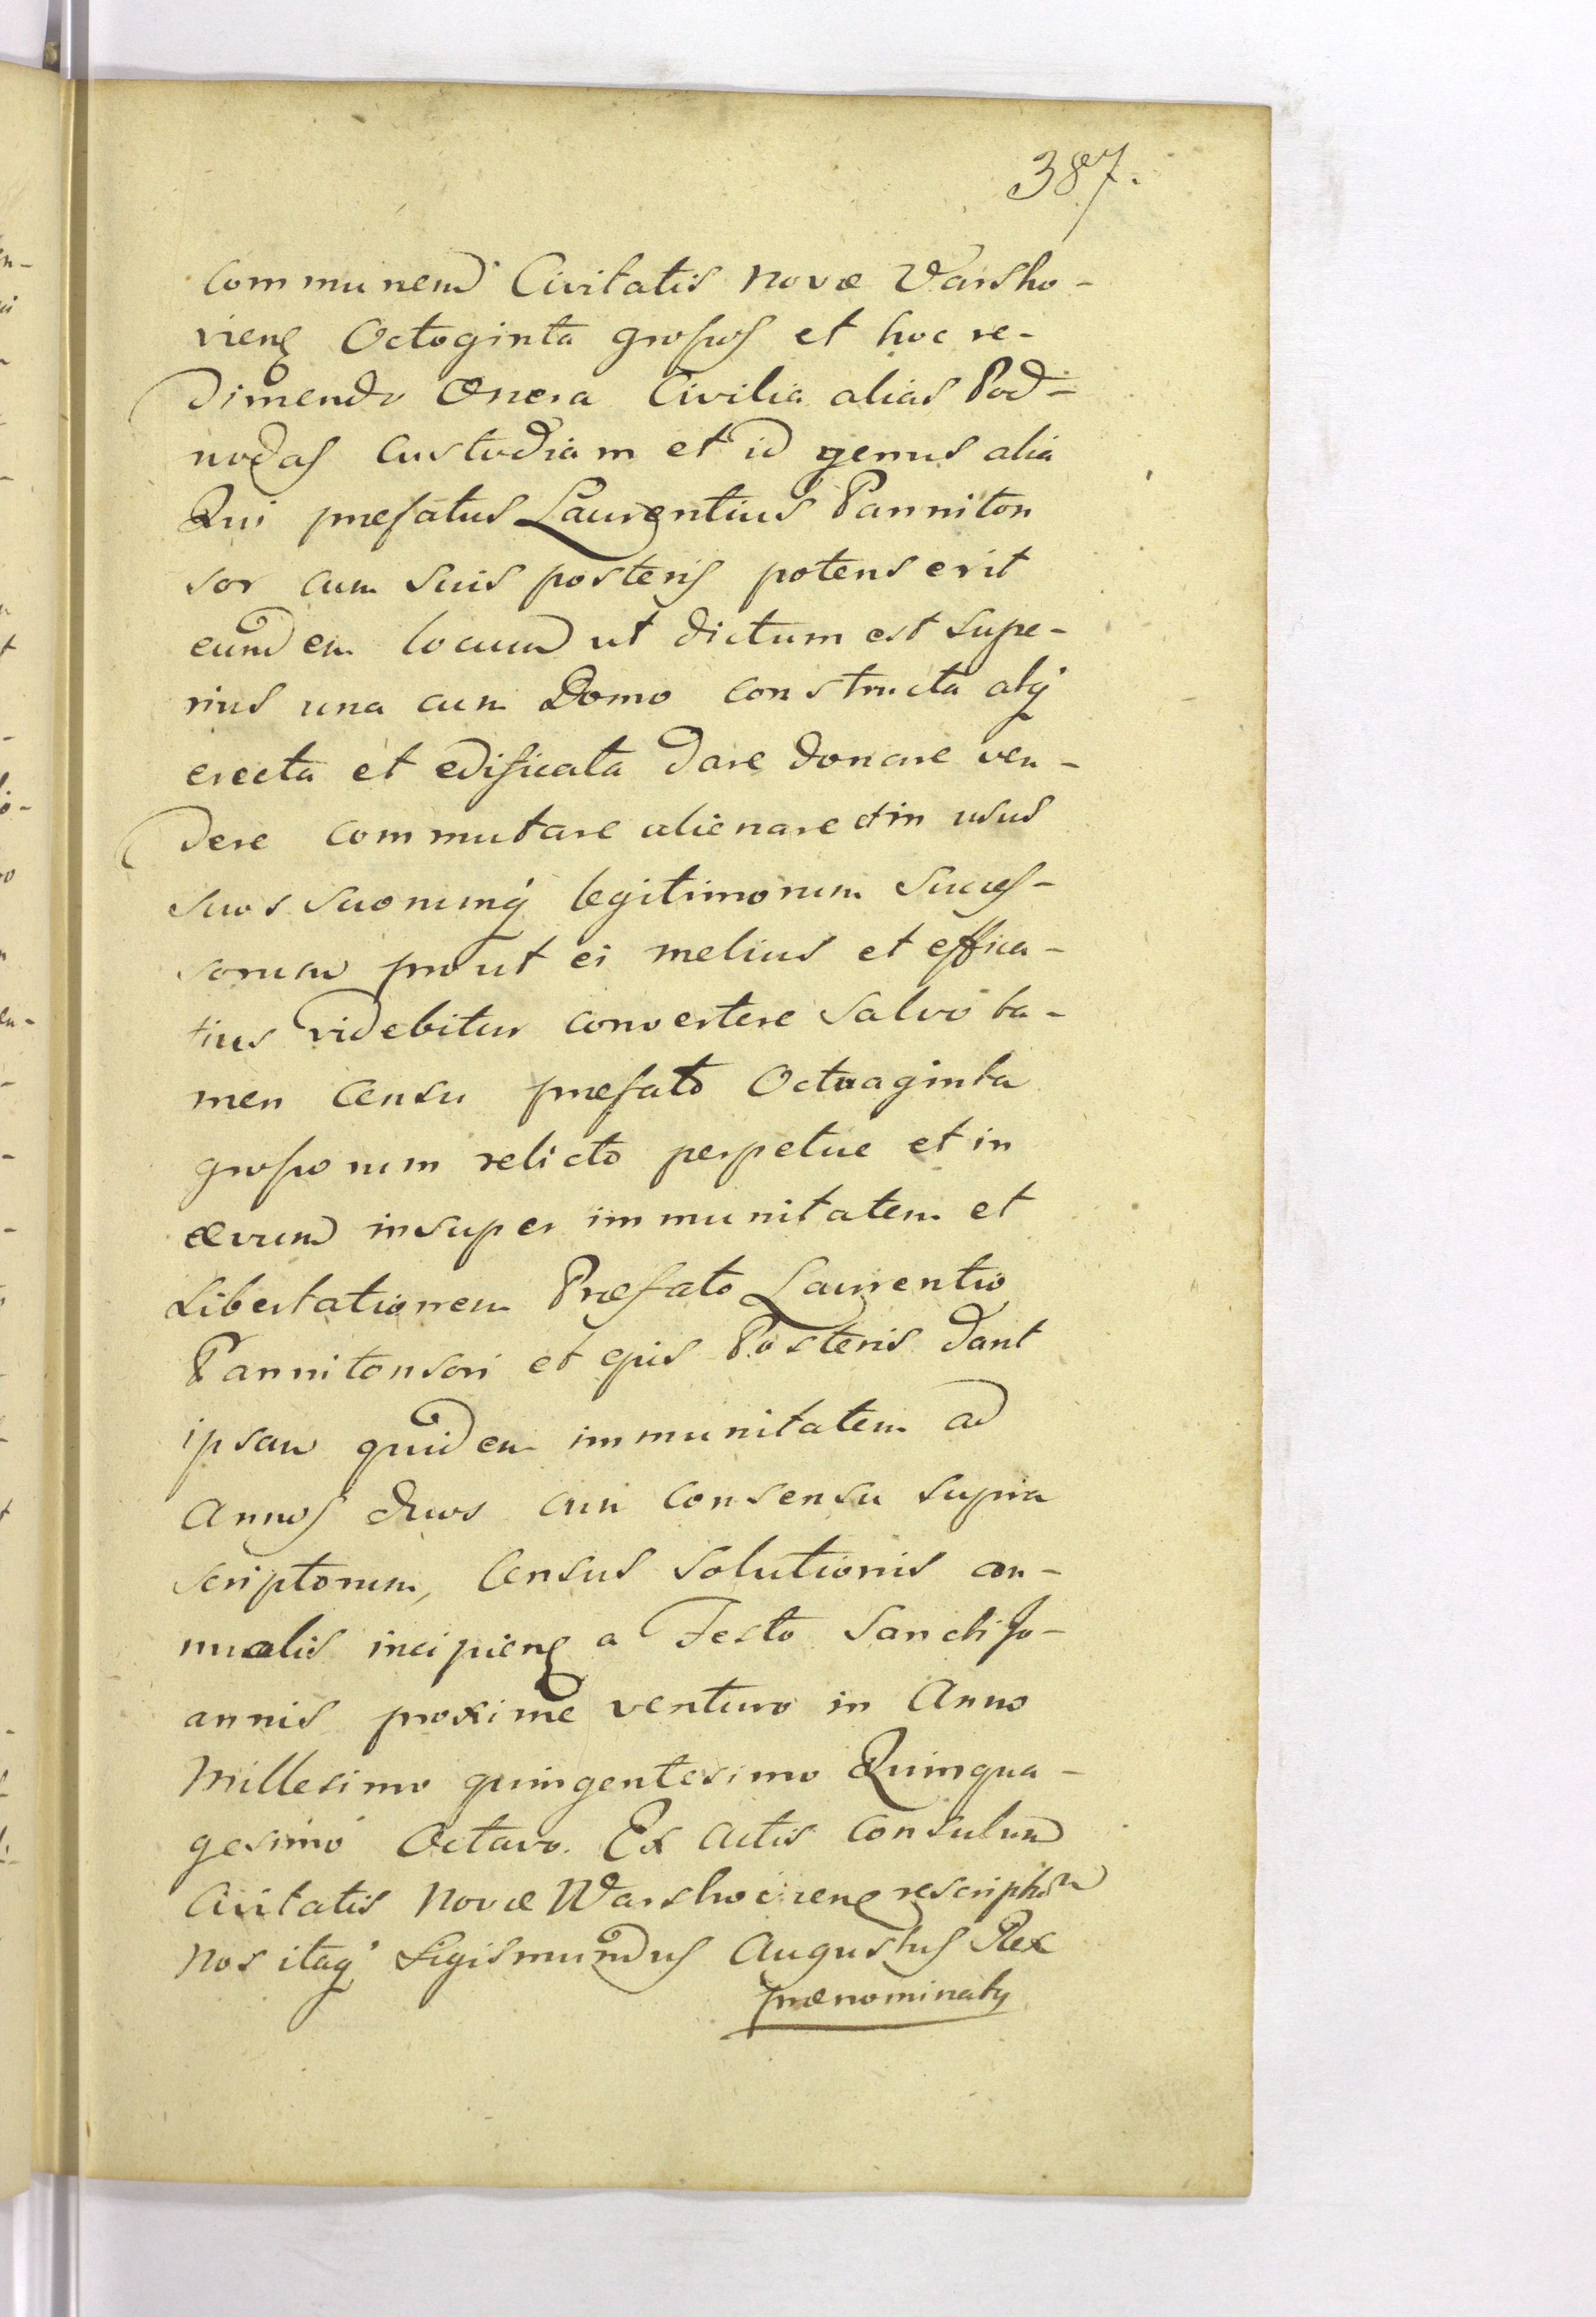 387.
communem Civitatis Novæ Varsho-
vien̄ Octoginta grossos et hoc re-
dimendo Onera Civilia alias Pod-
wodas custodiam et id genus alia
Qui prefatus Laurentius Panniton
sor cum suis posteris potens erit
eundem locum ut dictum est supe-
rius una cum Domo constructa atq́
erecta et edificata dare donare ven-
dere commutare alienare et in usus
suos suorumq́ legitimorum succes-
sorum prout ei melius et effica-
tius videbitur convertere salvo ta-
men Censu prefato Octuaginta
grossorum relicto perpetue et in
ævum insuper immunitatem et
Libertationem Præfato Laurentio
Pannitonsori et ejus Posteris dant
ipsam quidem immunitatem ad
Annos duos cum consensu supra
scriptorum, Census solutionis an-
nualis incipien̄ a Festo Sancti Jo-
annis proxime venturo in Anno
Millesimo quingentesimo Quinqua-
gesimo Octavo. Ex Actis Consulum
Civitatis Novæ Warshovien̄ rescriptum
Nos itaq́ Sigismundus Augustus Rex
prænominatus